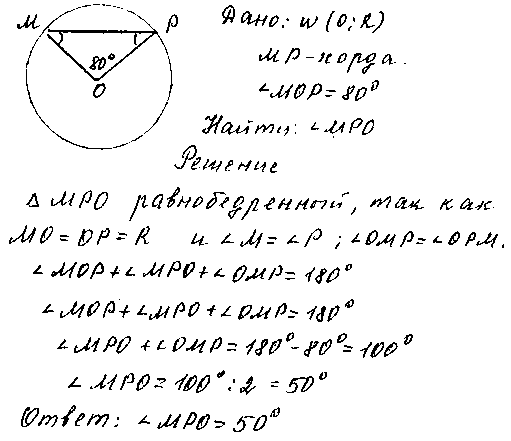 M P Дано: w (O; R)
80° MP-хорда.
O ∠MOP=80°
Найти: ∠MPO
Решение
Δ MPO равнобедренный, так как
MO=OP=R и ∠M=∠P; ∠OMP=∠OPM.
∠MOP+∠MPO+∠OMP=180°
∠MOP+∠MPO+∠OMP=180°
∠MPO+∠OMP=180°-80°=100°
∠MPO=100°:2=50°
Ответ: ∠MPO=50°